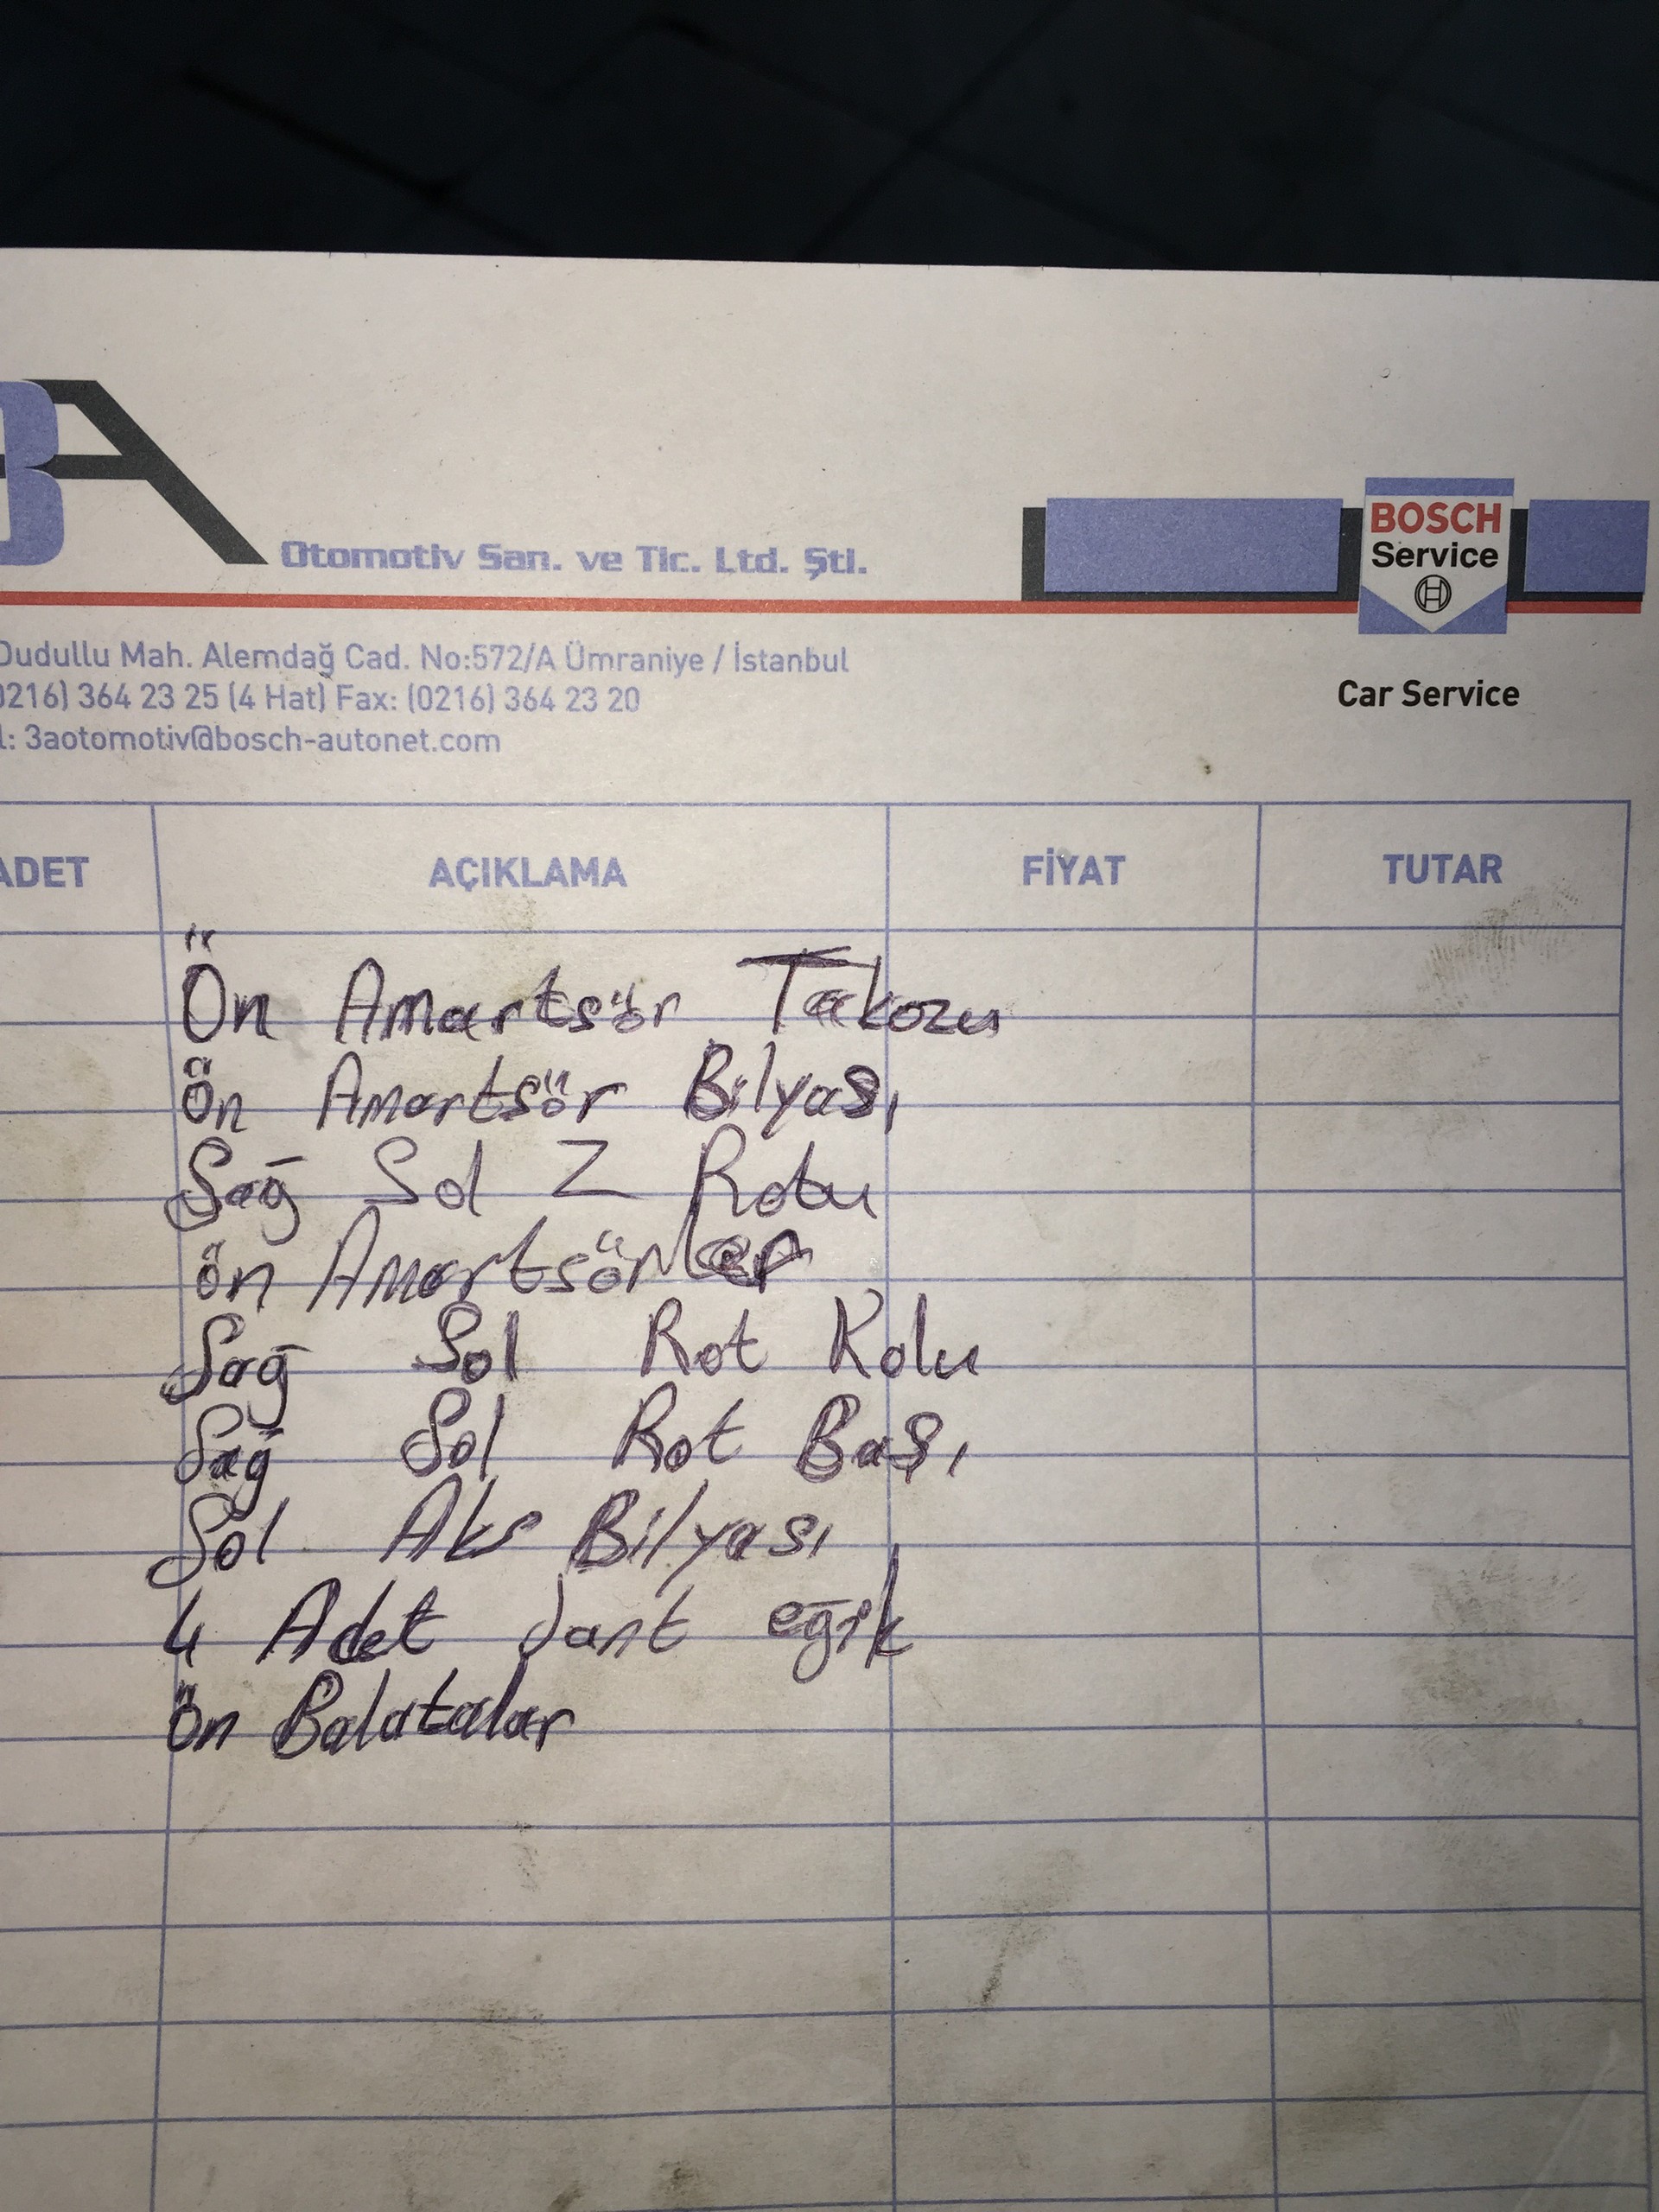 3A
Otomotiv San. ve Tic. Ltd. Şti.
BOSCH
Service
Car Service
Dudullu Mah. Alemdağ Cad. No:572/A Ümraniye / İstanbul
0216) 364 23 25 (4 Hat) Fax: (0216) 364 23 20
l: 3aotomotiv@bosch-autonet.com
ADET AÇIKLAMA FİYAT TUTAR
Ön Amartsör Takozu
Ön Amartsör Bilyası
Sağ Sol Z Rotu
ön Amartsörler
Sağ Sol Rot Kolu
Sağ Sol Rot Başı
Sol Aks Bilyası
4 Adet Jant eğik
Ön Balatalar